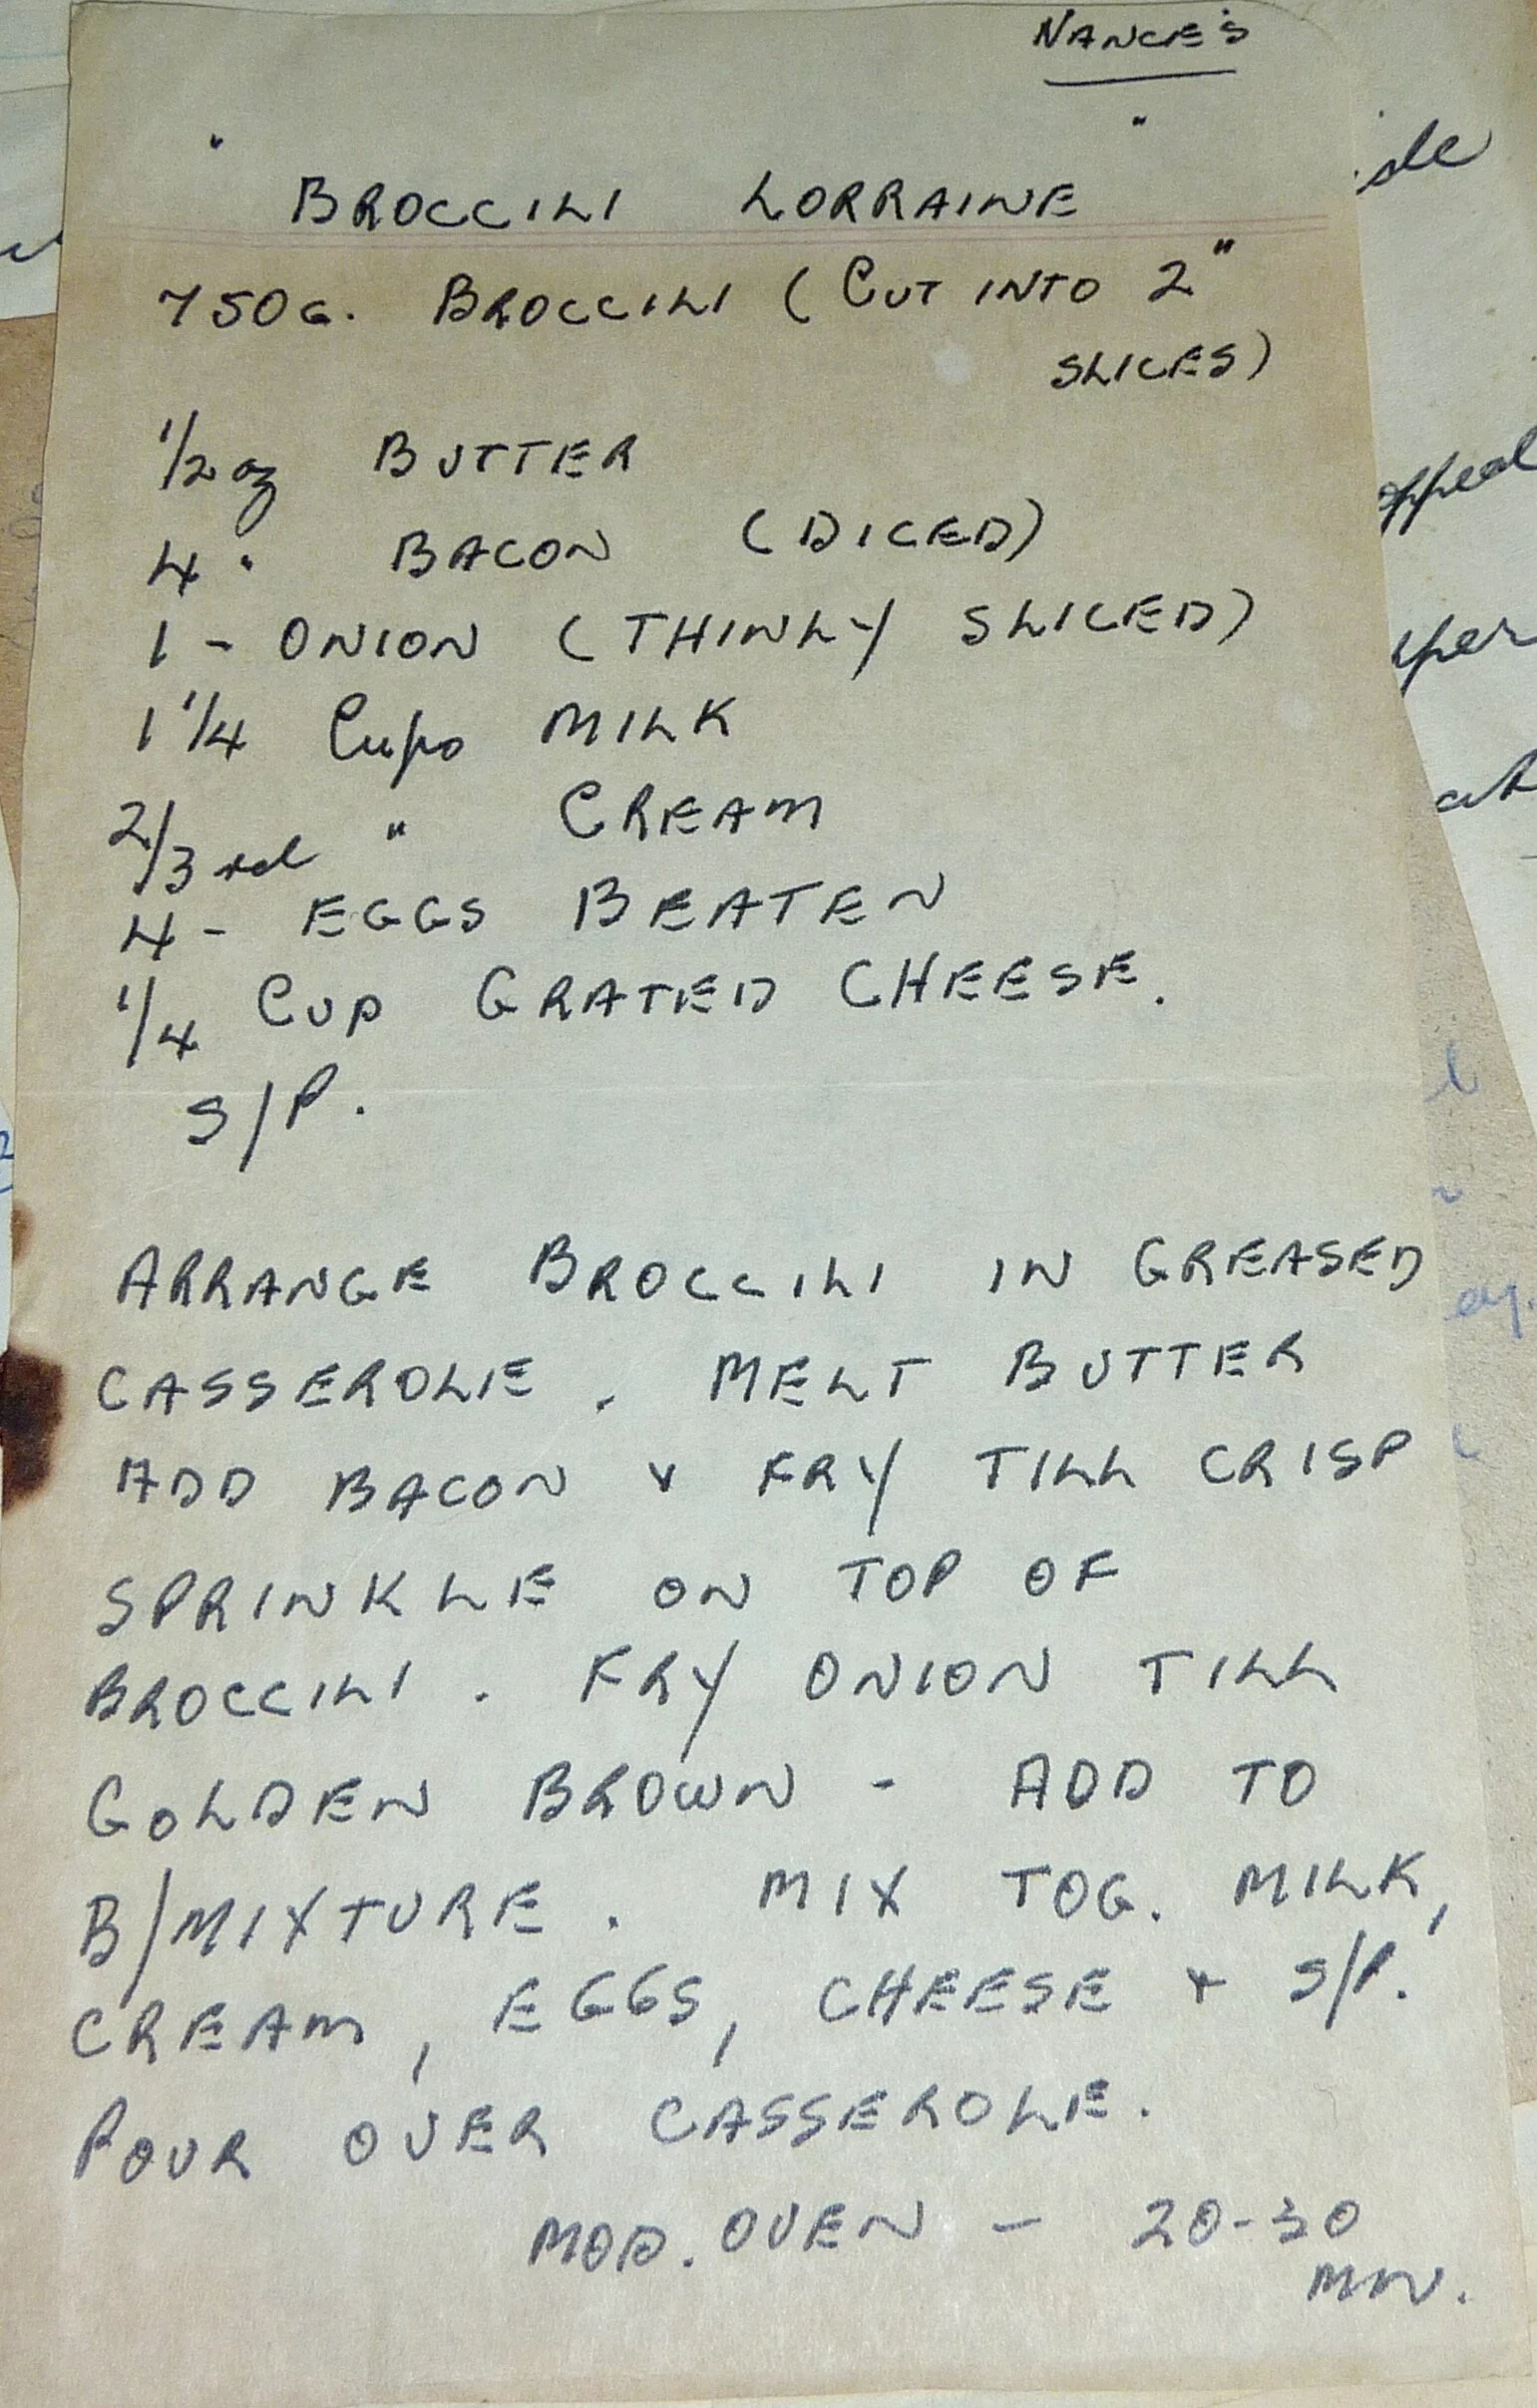 NANCIE'S
" BROCCILI LORRAINE "
750G. BROCCILI (CUT INTO 2"
SLICES)
1/2 oz BUTTER
4 . BACON (DICED)
1 - ONION (THINLY SLICED)
1 1/4 Cups MILK
2/3rd " CREAM
4 - EGGS BEATEN
1/4 CUP GRATED CHEESE.
S/P.
ARRANGE BROCCILI IN GREASED
CASSEROLE. MELT BUTTER
ADD BACON & FRY TILL CRISP
SPRINKLE ON TOP OF
BROCCILI. FRY ONION TILL
GOLDEN BROWN - ADD TO
B/MIXTURE. MIX TOG. MILK,
CREAM, EGGS, CHEESE & S/P.
POUR OVER CASSEROLE.
MOD. OVEN - 20-30
MIN.